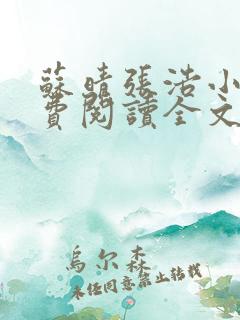 蘇晴張浩小
費閱讀全文
烏尔森
未经同意禁止转载